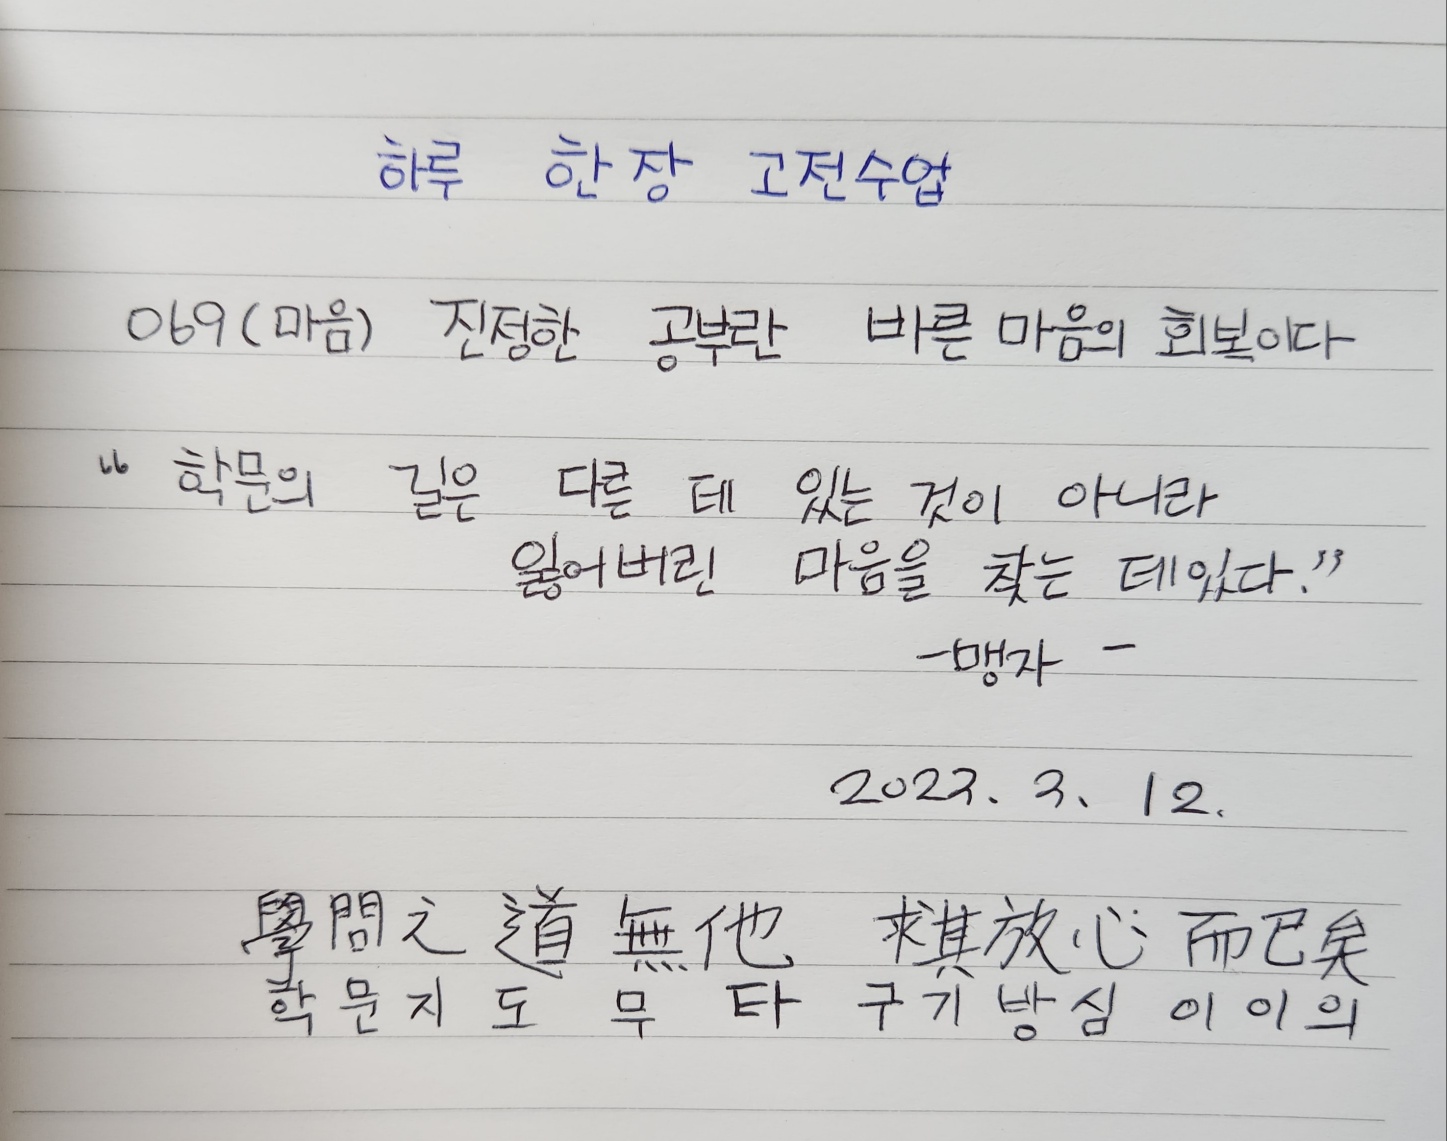 하루 한 장 고전수업
069(마음) 진정한 공부란 바른 마음의 회복이다
“학문의 길은 다른 데 있는 것이 아니라
잃어버린 마음을 찾는 데있다.”
-맹자-
2022. 3. 12.
學問之道無他 求其放心而已矣
학문지도무타 구기방심이이의